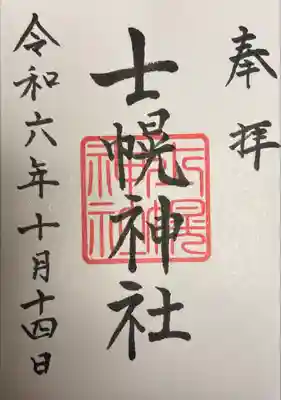 奉拝
士幌神社
士幌神社
令和六年十月十四日